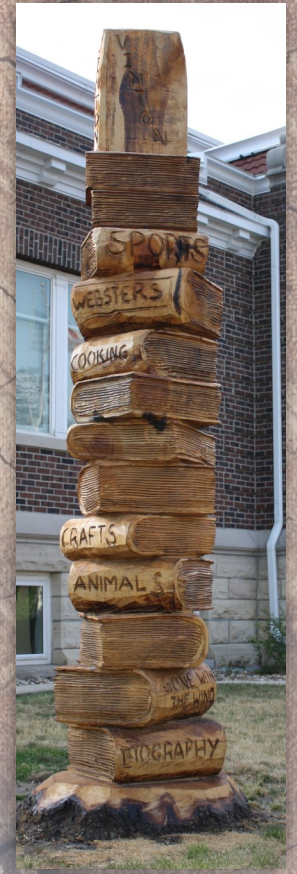 VINTON
SPORTS
WEBSTERS
COOKING
CRAFTS
ANIMALS
GONE WITH
THE WIND
BIOGRAPHY